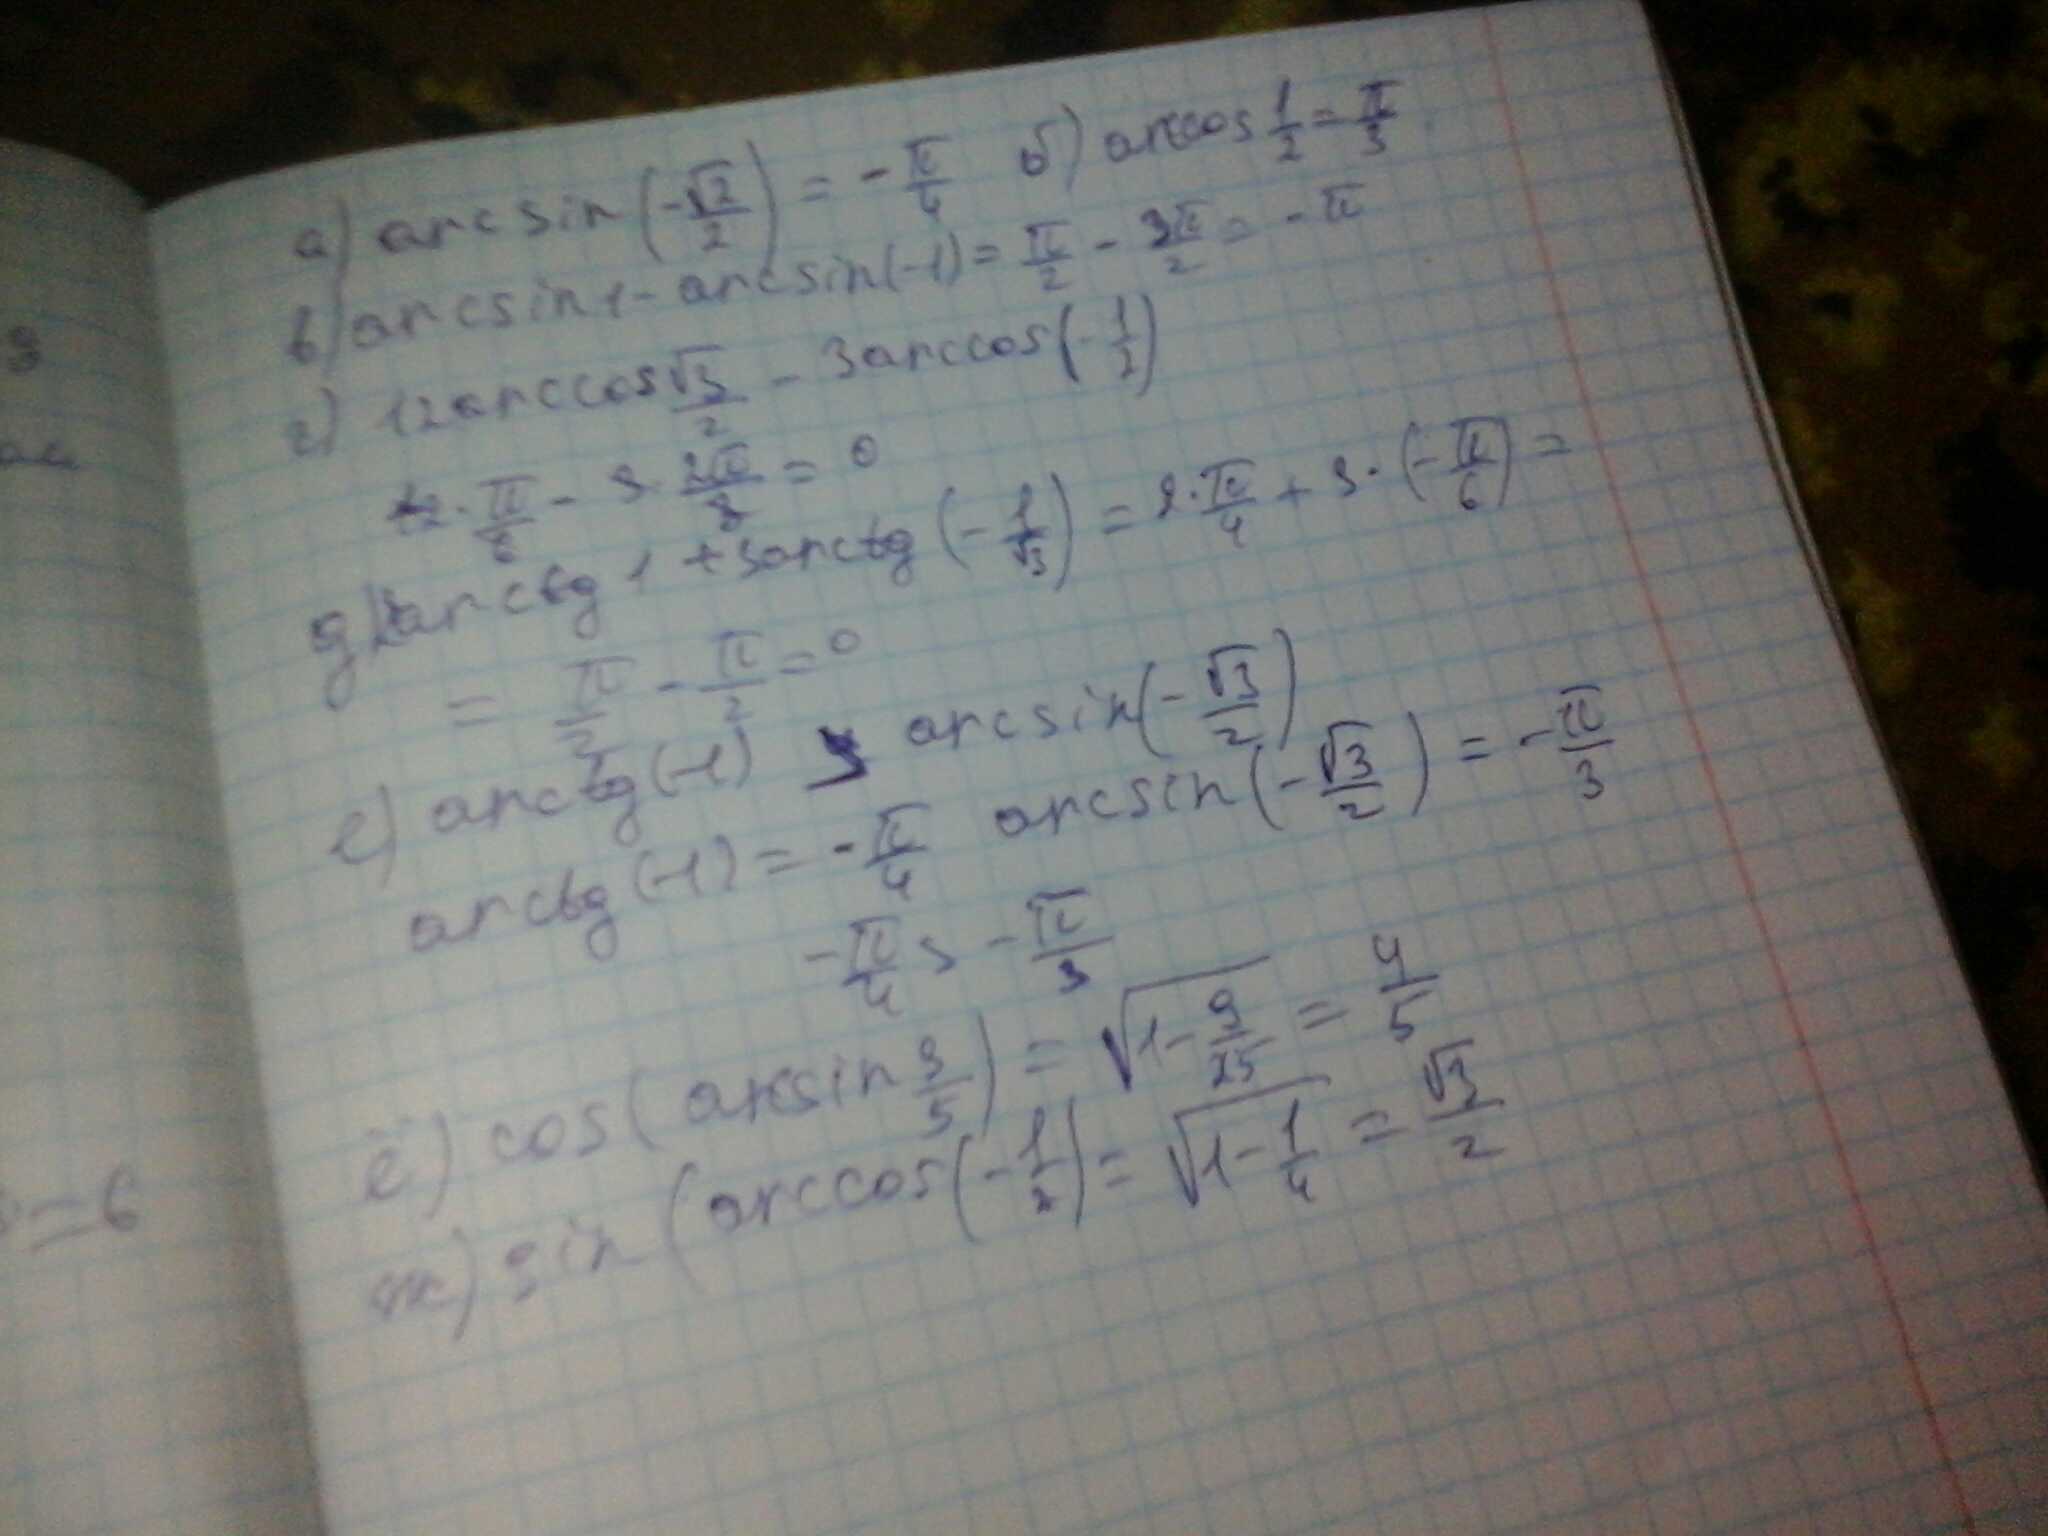 а) arcsin(-√2/2) = -π/4 б) arccos 1/2 = π/3
в) arcsin 1 - arcsin(-1) = π/2 - 3π/2 = -π
г) 12arccos √3/2 - 3arccos(-1/2)
12·π/6 - 3·2π/3 = 0
д) 2arctg 1 + 3arctg(-1/√3) = 2·π/4 + 3·(-π/6) =
= π/2 - π/2 = 0
е) arctg(-1) > arcsin(-√3/2)
arctg(-1) = -π/4 arcsin(-√3/2) = -π/3
-π/4 > -π/3
ё) cos(arcsin 3/5) = √(1-9/25) = 4/5
ж) sin(arccos(-1/2) = √(1-1/4) = √3/2
=6